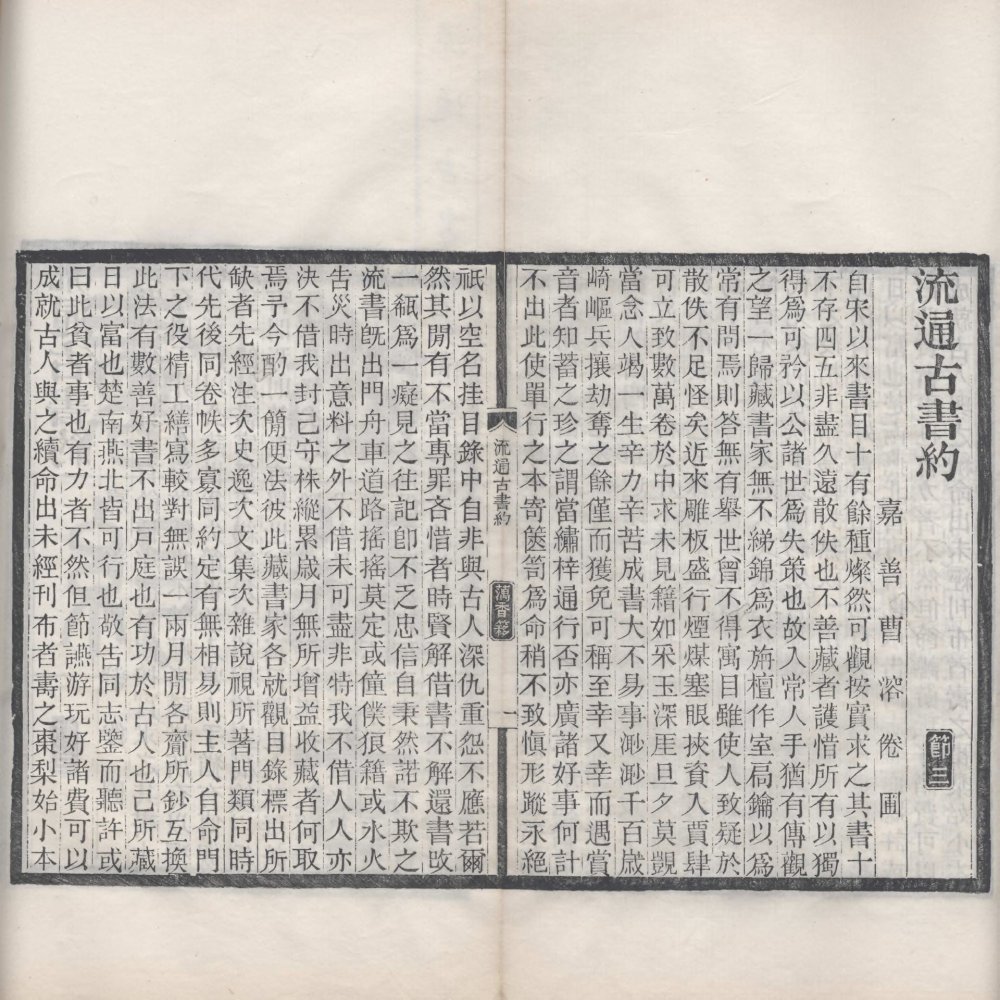 流通古書約
嘉善曹溶倦圃
節三
自宋以來書目十有餘種燦然可觀按實求之其書十
不存四五非盡久遠散佚也不善藏者護惜所有以獨
得爲可矜以公諸世爲失策也故入常人手猶有傳觀
之望一歸藏書家無不綈錦爲衣旃檀作室扃鑰以爲
常有問焉則答無有舉世曾不得寓目雖使人致疑於
散佚不足怪矣近來雕板盛行煙煤塞眼挾資入賈肆
可立致數萬卷於中求未見籍如采玉深厓旦夕莫覬
當念人竭一生辛力辛苦成書大不易事渺渺千百歲
崎嶇兵攘劫奪之餘僅而獲免可稱至幸又幸而遇賞
音者知蓄之珍之謂當繡梓通行否亦廣諸好事何計
不出此使單行之本寄篋笥爲命稍不致愼形蹤永絕
流通古書約
藕香簃
一
祇以空名挂目錄中自非與古人深仇重怨不應若爾
然其閒有不當專罪吝惜者時賢解借書不解還書改
一瓻爲一癡見之往記卽不乏忠信自秉然諾不欺之
流書旣出門舟車道路搖搖莫定或僮僕狼籍或水火
告災時出意料之外不借未可盡非特我不借人人亦
決不借我封己守株縱累歲月無所增益收藏者何取
焉予今酌一簡便法彼此藏書家各就觀目錄標出所
缺者先經注次史逸次文集次雜說視所著門類同時
代先後同卷帙多寡同約定有無相易則主人自命門
下之役精工繕寫較對無誤一兩月閒各齎所鈔互換
此法有數善好書不出戶庭也有功於古人也己所藏
日以富也楚南燕北皆可行也敬告同志鑒而聽許或
曰此貧者事也有力者不然但節讌游玩好諸費可以
成就古人與之續命出未經刊布者壽之棗梨始小本